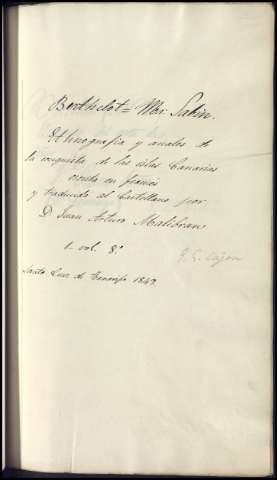 Berthelot = Mr. Sabin.
Ethnografia y anales de
la conquista de las islas Canarias
escrita en frances
y traducida al Castellano por
D. Juan Arturo Malibran
1. vol. 8º
Santa Cruz de Tenerife 1849.